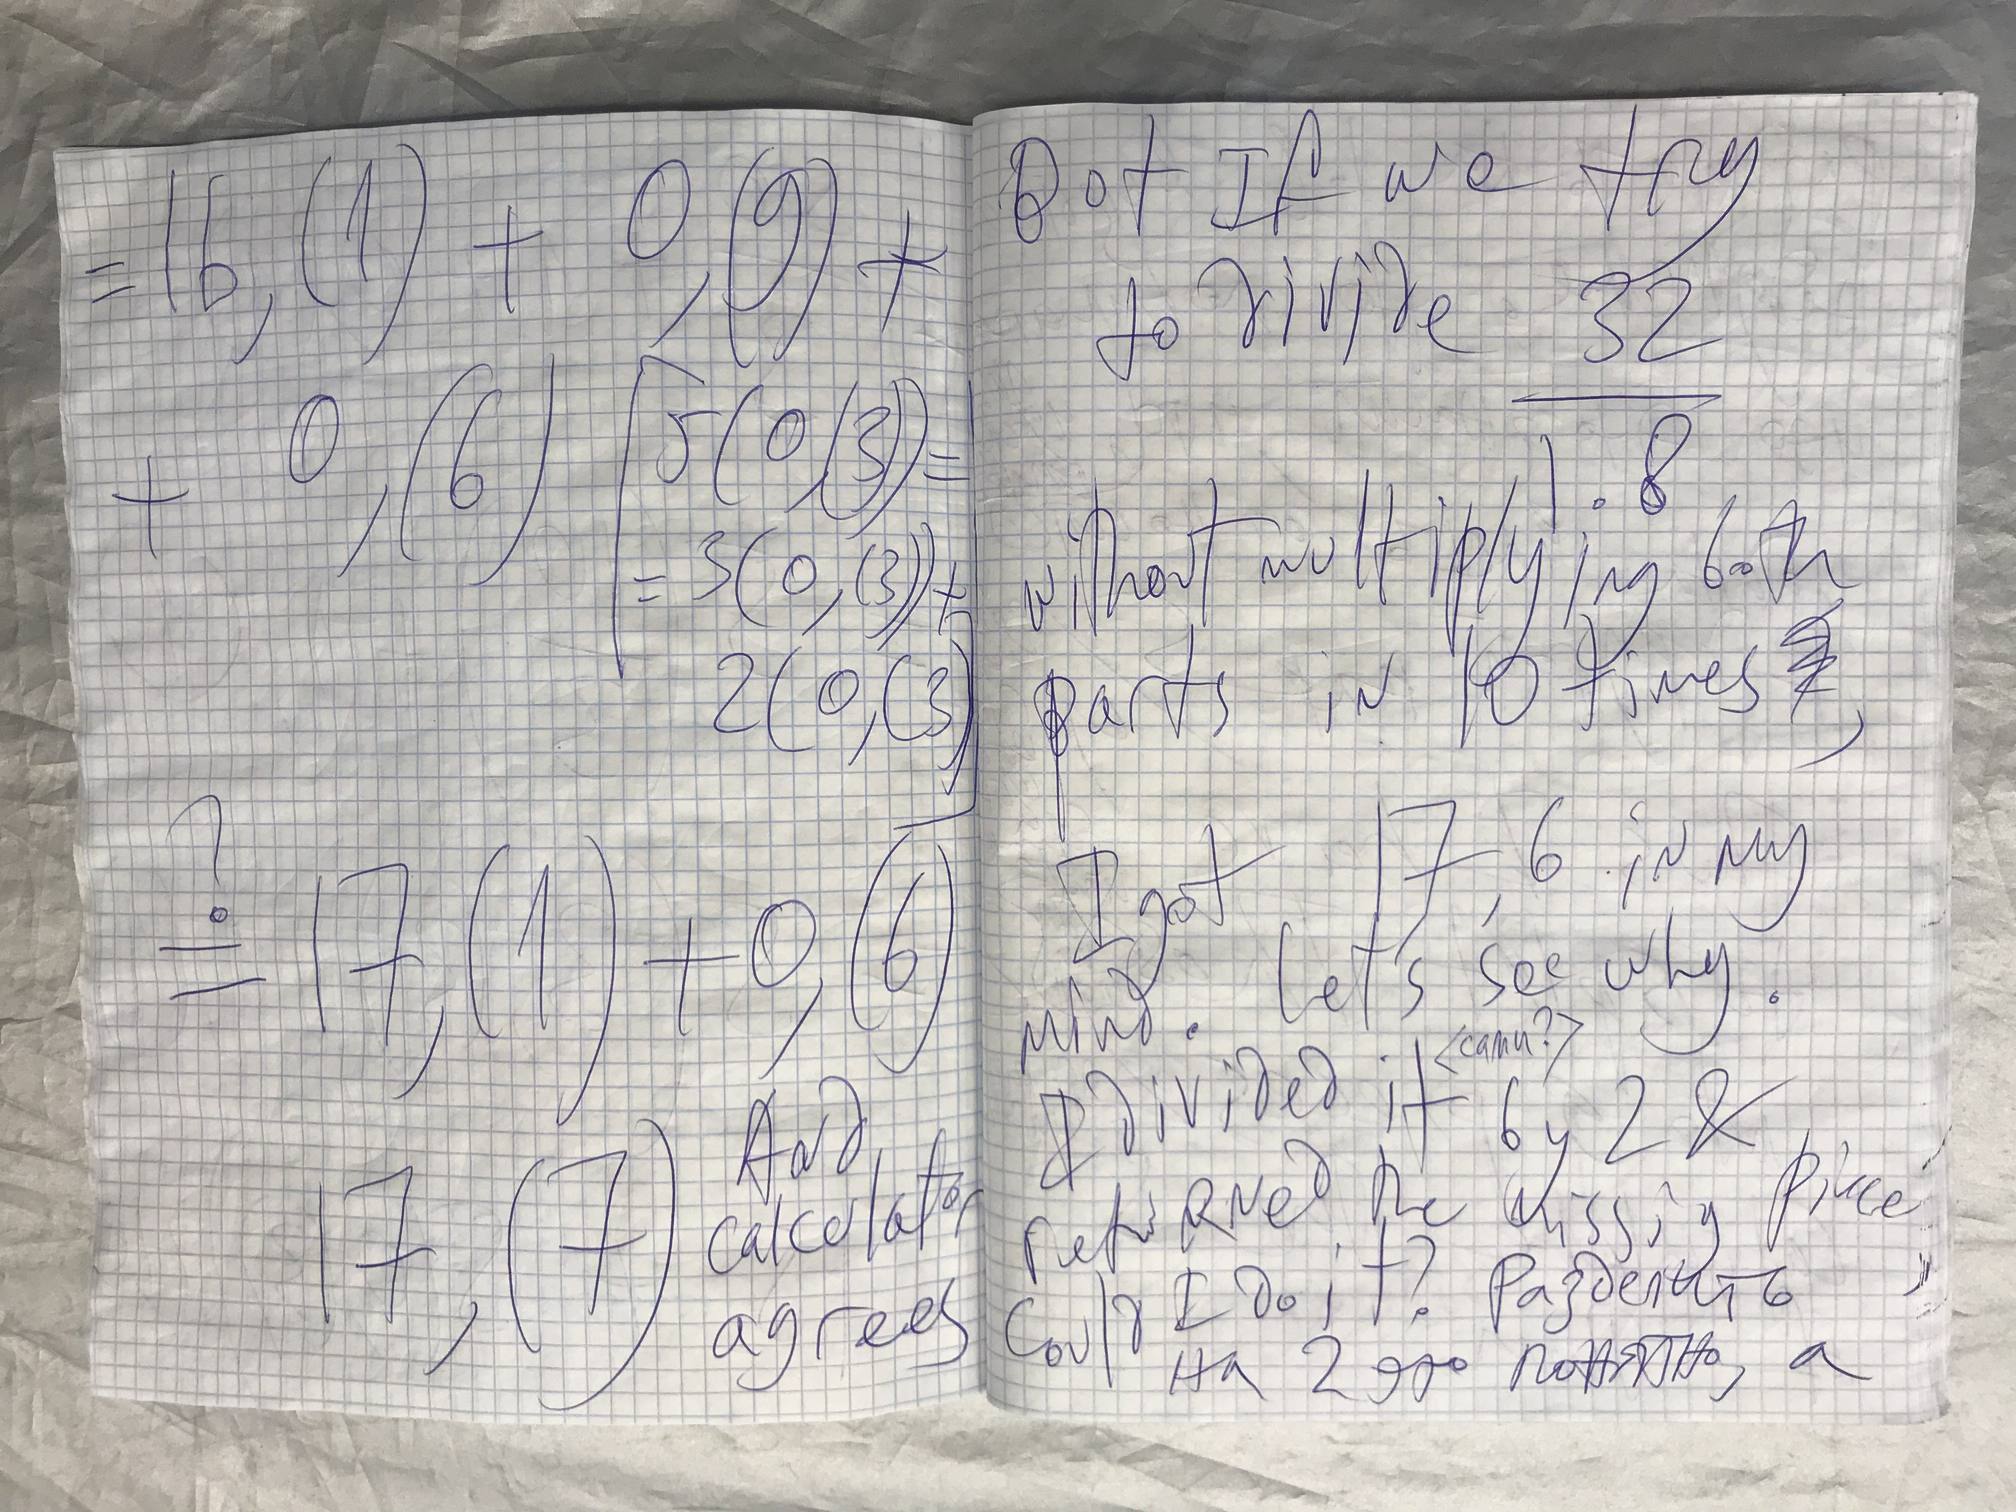 =16,(1) + 0,(9) +
+ 0,(6) [5(0,(3))=
=3(0,(3))+
2(0,(3)]
?
= 17,(1) + 0,(6)
17,(7) And
calculator
agrees
But If we try
to divide 32
1.8
without multiplying both
parts in 10 times,
I got 17,6 in my
mind. Let's see why.
<сами?>
I divided it by 2 &
returned the missig piece
Could I do it? Разделить
на 2 это понятно, а